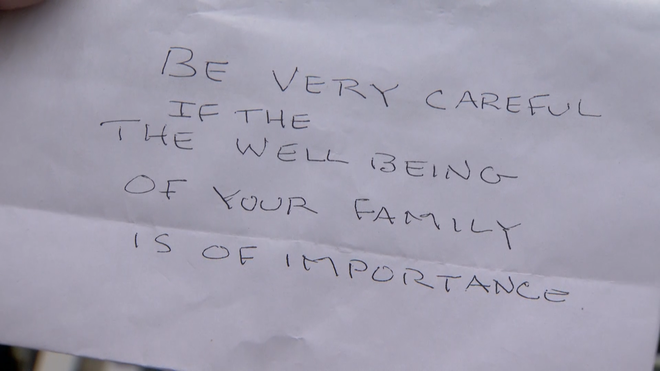 BE VERY CAREFUL
IF THE
THE WELL BEING
OF YOUR FAMILY
IS OF IMPORTANCE.